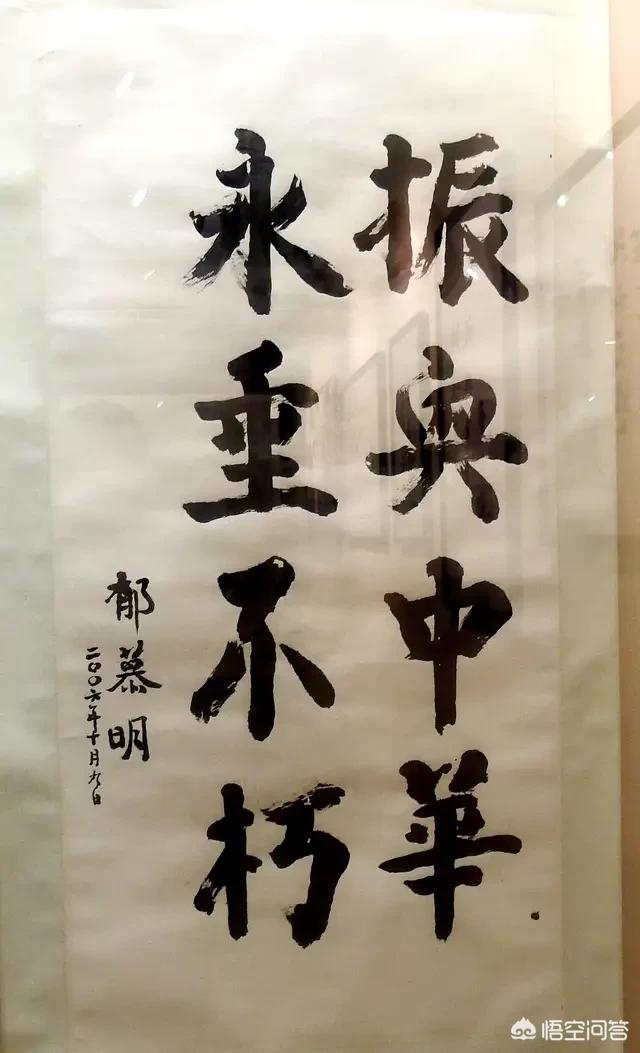 振興中華
永垂不朽
郁慕明
二〇〇六年十月九日
悟空问答